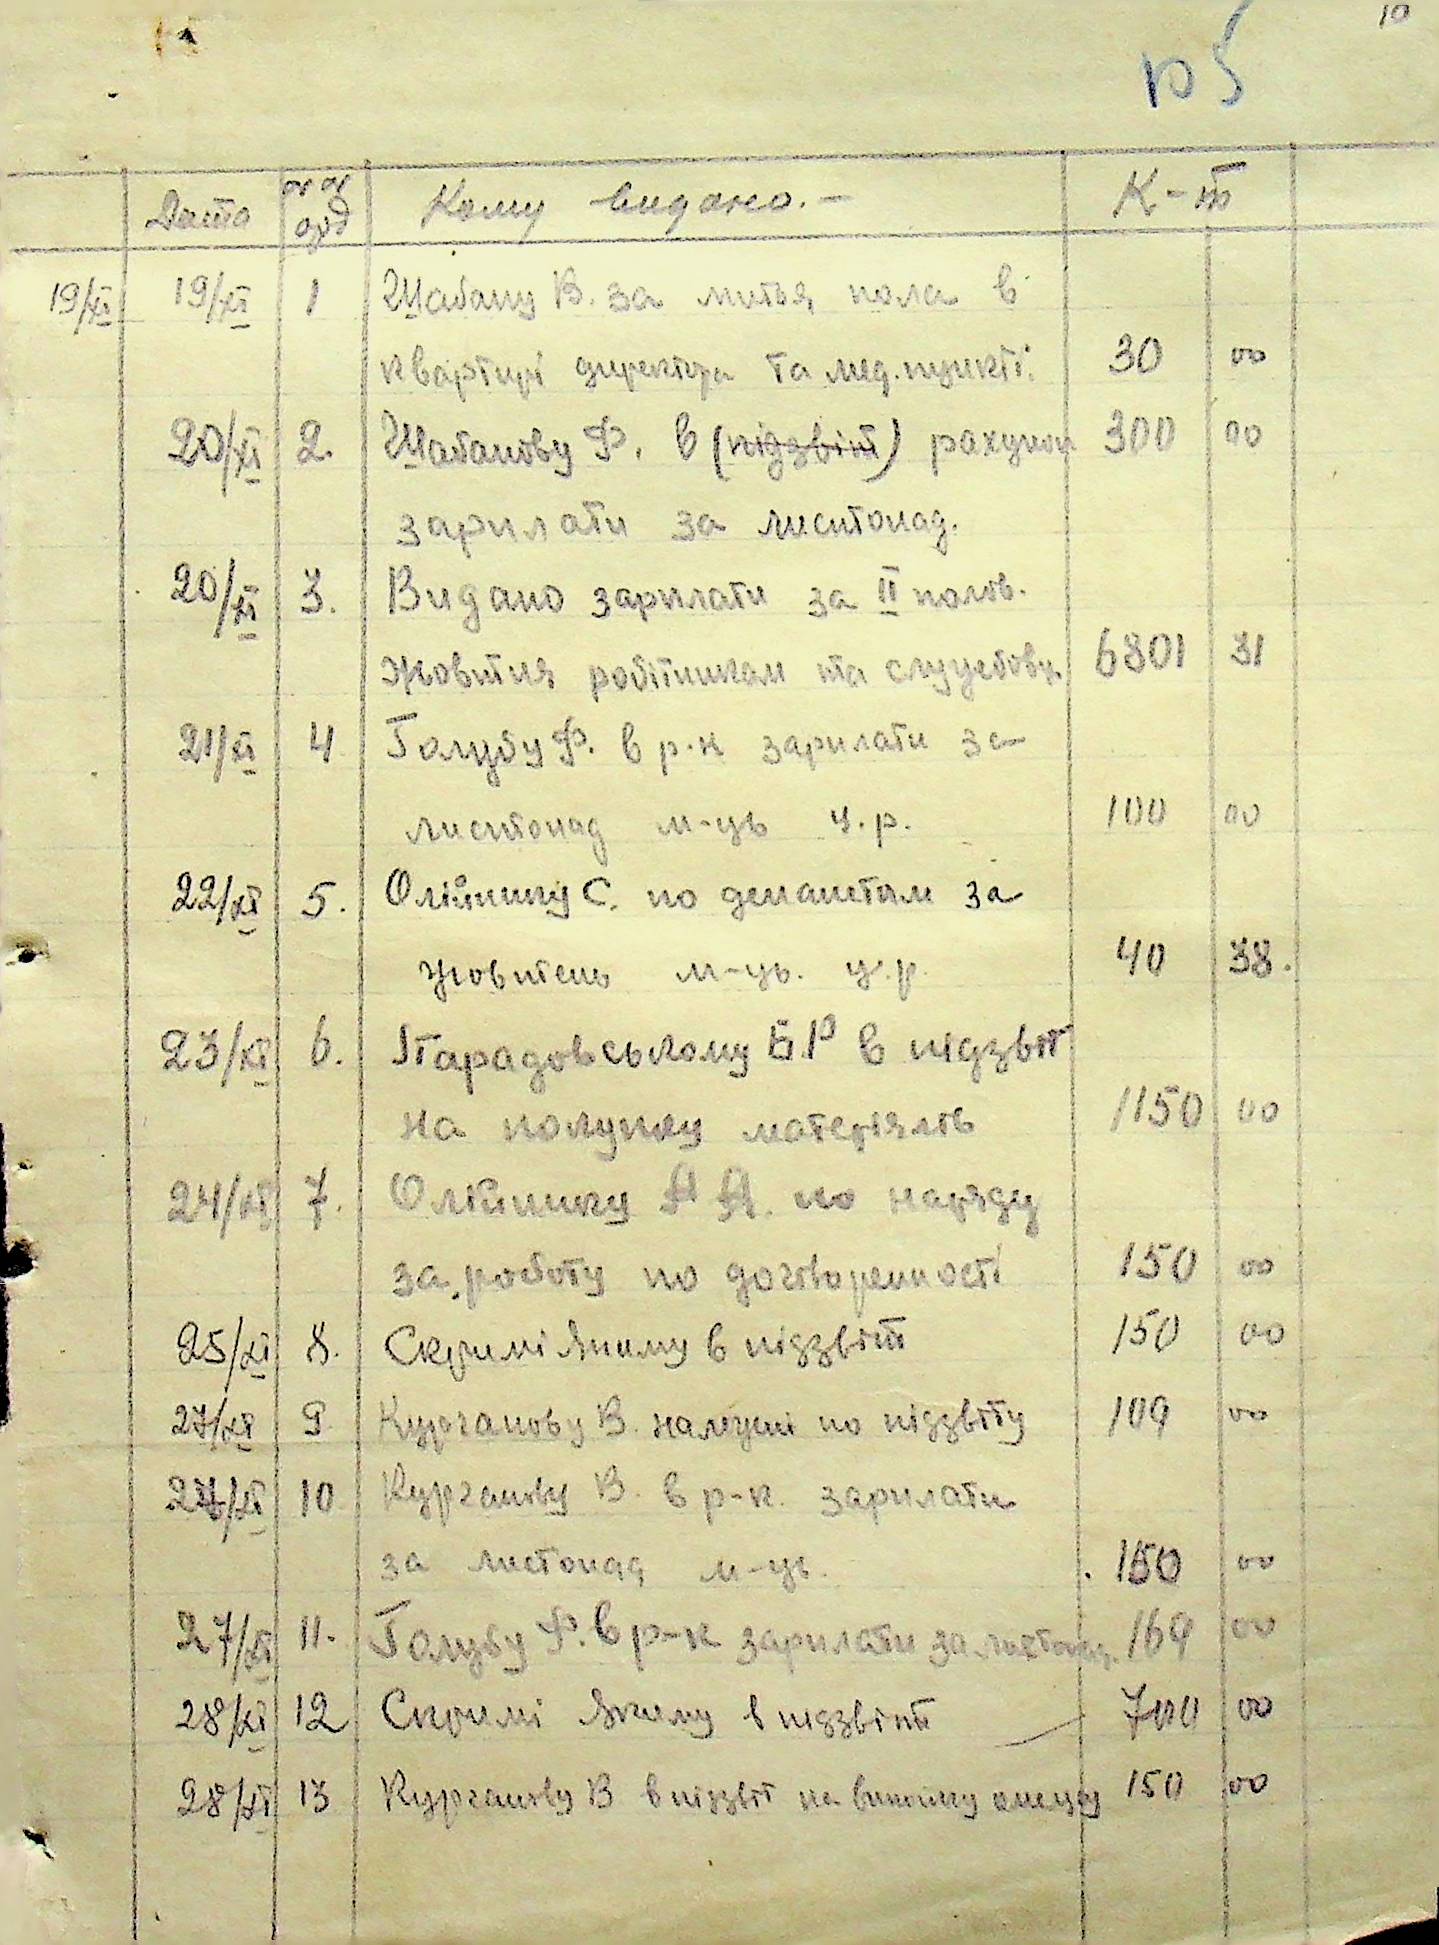 10
р5
Дата №№ орд Кому видано. – К-т
19/XI 19/XI 1 Шабану В. за митья пола в
квартирі директора та мед. пункті. 30 00
20/XI 2. Шабанову Ф. в (підзвіт) рахунок 300 00
зарплати за листопад.
20/XI 3. Видано зарплати за II полов.
жовтня робітникам та службовц. 6801 31
21/XI 4 Голубу Ф. в р-к зарплати за
листопад м-ць ц.р. 100 00
22/XI 5. Олійнику С. по депанетам за
жовтень м-ць. ц.р. 40 38.
23/XI 6. Парадовському Б.Р в підзвіт
на покупку матеріялів 1150 00
24/XI 7. Олійнику А А. по наряду
за роботу по договоренності 150 00
25/XI 8. Скрималі Якиму в підзвіт 150 00
27/XI 9 Курганову В. по підзвіту 109 00
/XI 10 Курганову В. в р-к. зарплати
за листопад м-ць. 150 00
27/XI 11. Голубу Ф. в р-к зарплати за листопад. 169 00
28/XI 12 Якиму в підзвіт 700 00
28/XI 13 Курганову В в підзвіт на 150 00